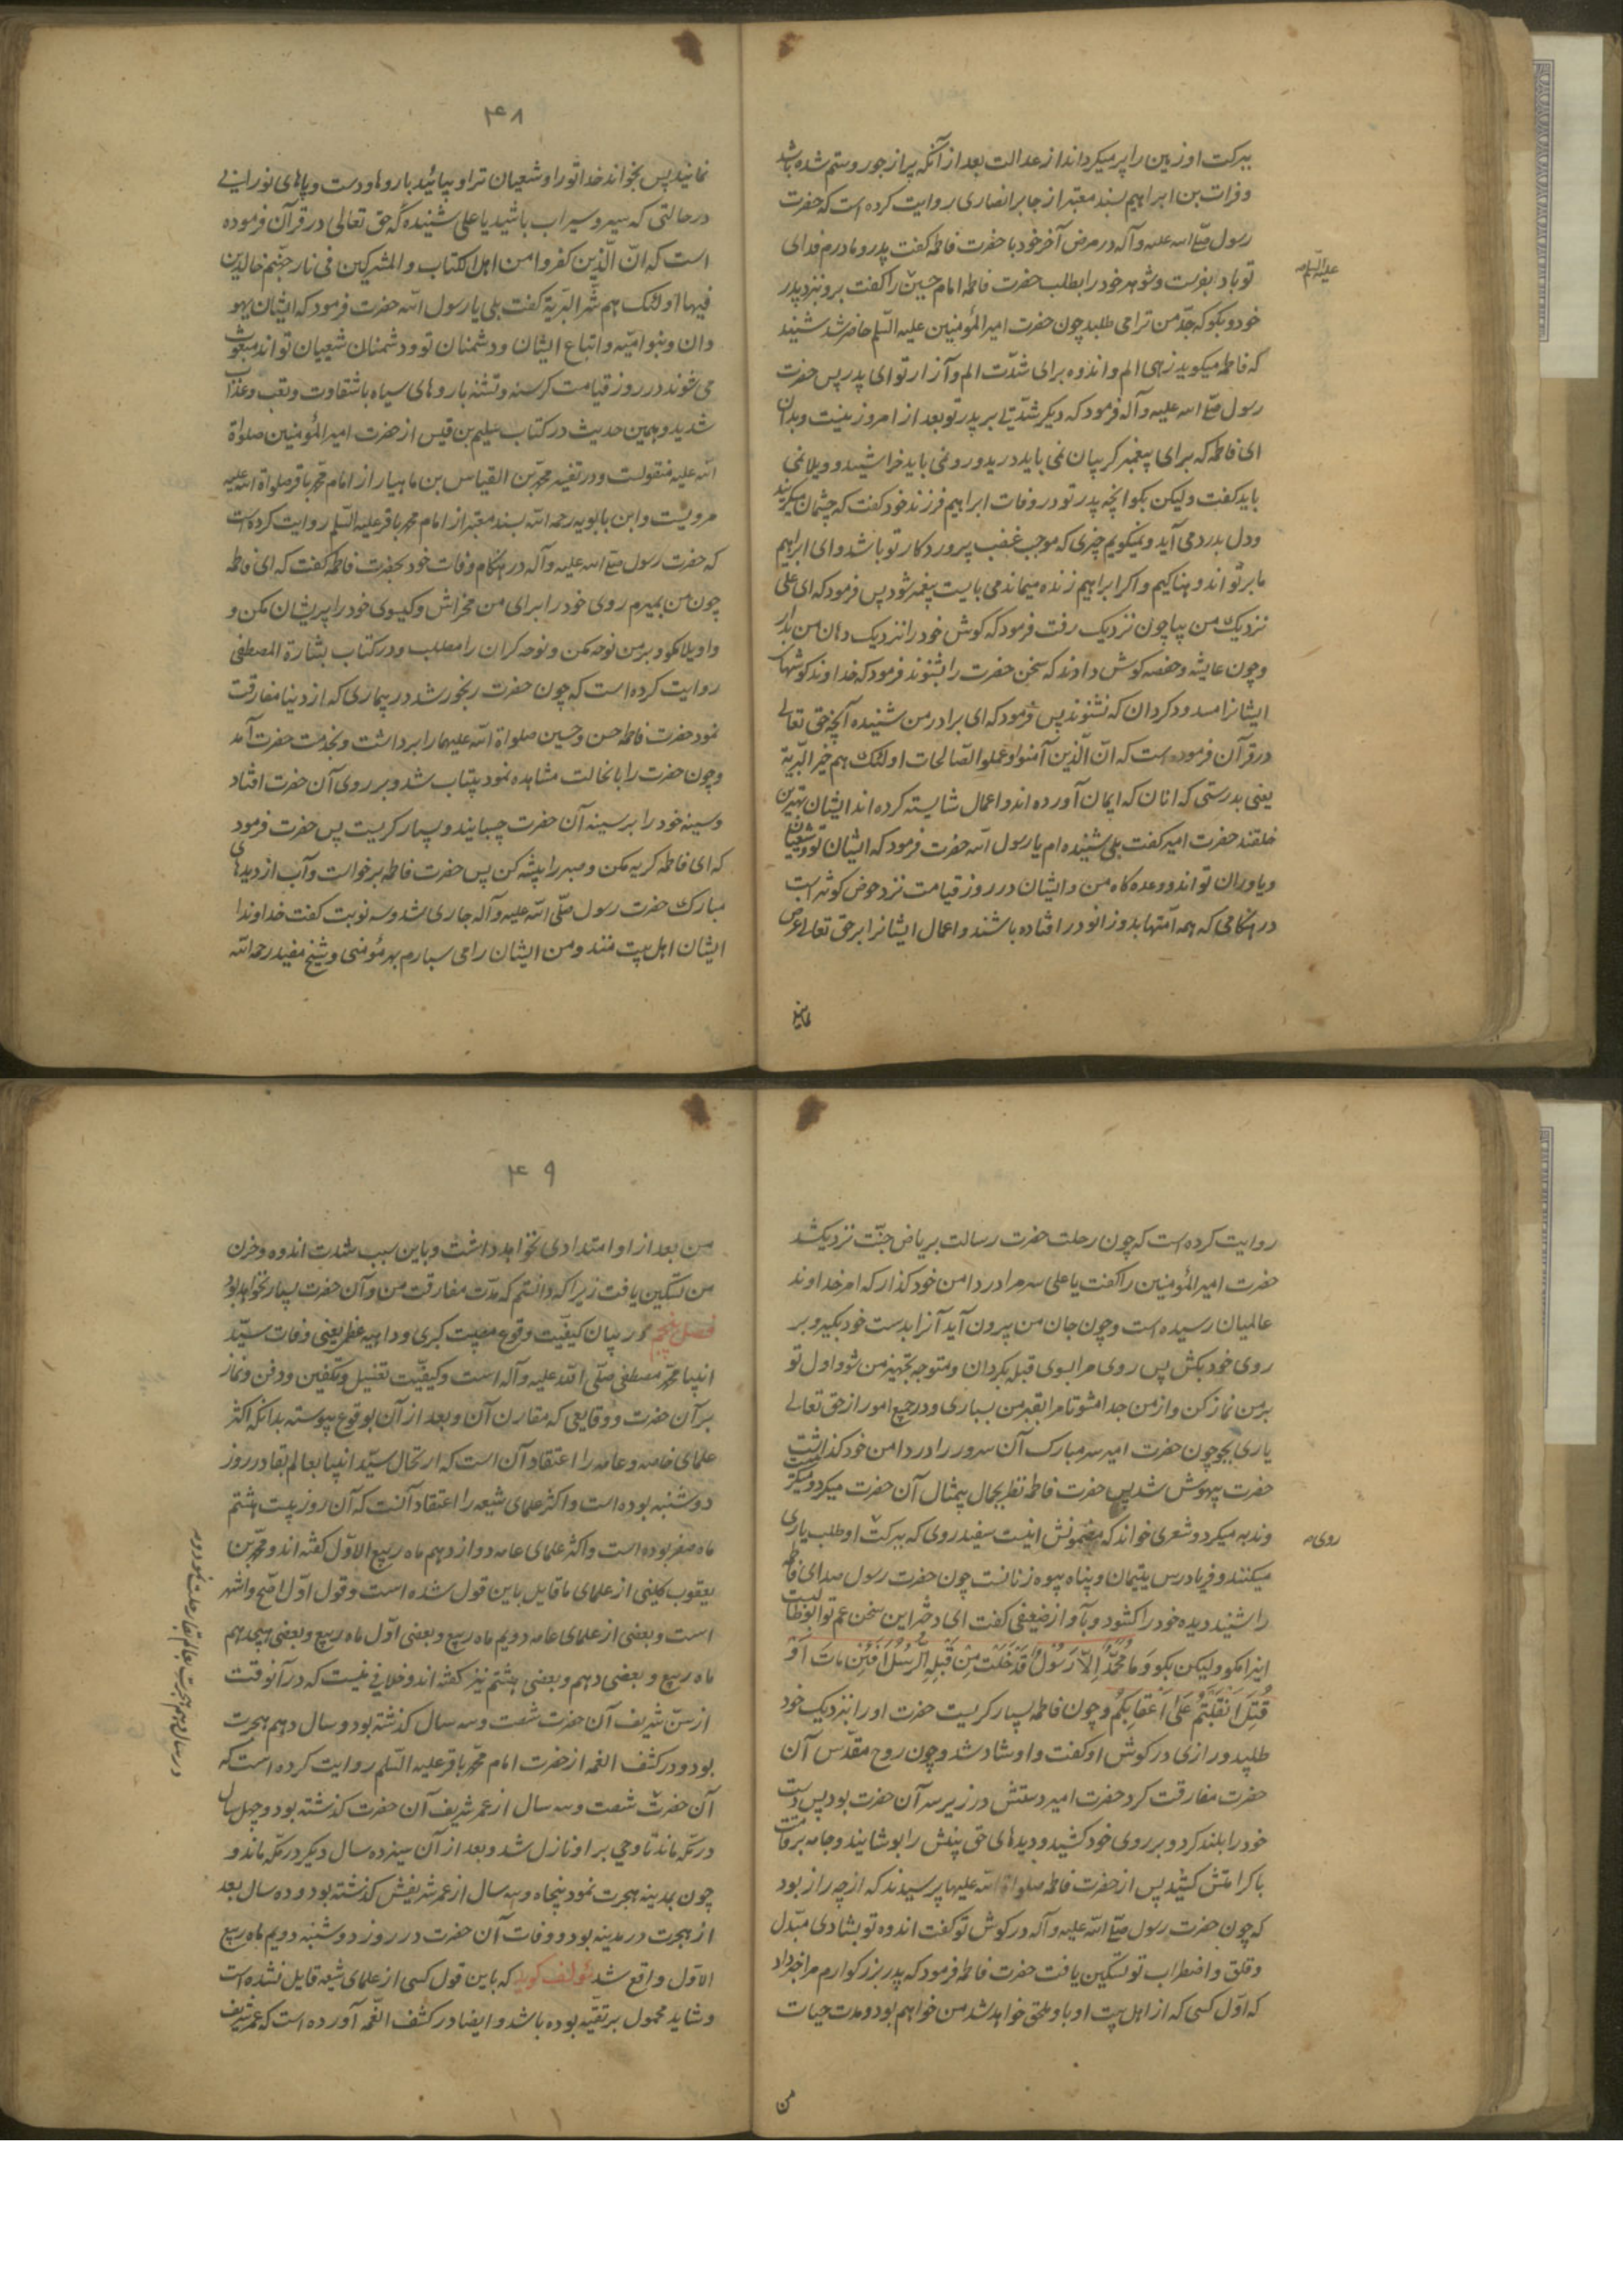 ببرکت او زمین را پر میکرداند از عدالت بعد از آنکه پر از جور و ستم شده باشد
و فرات بن ابراهیم بسند معتبر از جابر انصاری روایت کرده است که حضرت
رسول صلی الله علیه و آله در مرض آخر خود با حضرت فاطمه کفت پدر و مادرم فدای
علیه السلام
تو باد بفرست و شوهر خود را بطلب حضرت فاطمه امام حسین را کفت برو بنزد پدر
خود و بکو که جد من ترا می طلبد چون حضرت امیر المؤمنین علیه السلم حاضر شد شنید
که فاطمه میکوید زهی الم و اندوه برای شدت الم و آزار تو ای پدر پس حضرت
رسول صلی الله علیه و آله فرمود که دیکر شدتی بر پدر تو بعد از امروز نیست و بدان
ای فاطمه که برای پیغمبر کریبان نمی باید درید و رو نمی باید خراشید و ویلا نمی
باید کفت ولیکن بکو انچه پدر تو در وفات ابراهیم فرزند خود کفت که چشمان میکریند
و دل بدرد می آید و نمیکویم چیزی که موجب غضب پروردکار تو باشد و ای ابراهیم
ما بر تو اندوهناکیم و اکر ابراهیم زنده میماند می بایست پیغمبر شود پس فرمود که ای علی
نزدیک من بیا چون نزدیک رفت فرمود که کوش خود را نزدیک دهان من بدار
و چون عایشه و حفصه کوش دادند که سخن حضرت را بشنوند فرمود که خداوندا کوشهای
ایشانرا مسدود کردان که نشنوند پس فرمود که ای برادر من شنیده آنچه حق تعالی
در قرآن فرموده است که ان الذین آمنوا و عملوا الصالحات اولئک هم خیر البریة
یعنی بدرستی که انان که ایمان آورده اند و اعمال شایسته کرده اند ایشان بهترین
خلقند حضرت امیر کفت بلی شنیده ام یا رسول الله حضرت فرمود که ایشان تو و شیعیان
و یاوران تواند و وعده کاه من و ایشان در روز قیامت نزد حوض کوثر است
در هنکامی که همه امتها بدو زانو در افتاده باشند و اعمال ایشانرا بر حق تعالی عرض
نمایند
۴۸
نمایند پس بخواند خدا تو را و شیعیان ترا و بیائید با روها و دست و پاهای نورانی
در حالتی که سیر و سیراب باشید یا علی شنیده که حق تعالی در قرآن فرموده
است که ان الذین کفروا من اهل الکتاب و المشرکین فی نار جهنم خالدین
فیها اولئک هم شر البریة کفت بلی یا رسول الله حضرت فرمود که ایشان یهو
دان و بنو امیه و اتباع ایشان و دشمنان تو و دشمنان شیعیان تواند مبعوث
می شوند در روز قیامت کرسنه و تشنه با روهای سیاه با شقاوت و تعب و عذاب
شدید و همین حدیث در کتاب سلیم بن قیس از حضرت امیر المؤمنین صلواة
الله علیه منقولست و در تفسیر محمد بن القیاس بن ماهیار از امام محمد باقر صلواة الله علیه
مرویست و ابن بابویه رحمه الله بسند معتبر از امام محمد باقر علیه السلم روایت کرده است
که حضرت رسول صلی الله علیه و آله در هنکام وفات خود بحضرت فاطمه کفت که ای فاطمه
چون من بمیرم روی خود را برای من مخراش و کیسوی خود را پریشان مکن و
واویلا مکو و بر من نوحه مکن و نوحه کران را مطلب و در کتاب بشارة المصطفی
روایت کرده است که چون حضرت رنجور شد در بیماری که از دنیا مفارقت
نمود حضرت فاطمه حسن و حسین صلواة الله علیهما را برداشت و بخدمت حضرت آمد
و چون حضرت را باینحالت مشاهده نمود بیتاب شد و بر روی آن حضرت افتاد
و سینه خود را بر سینه آن حضرت چسبانید و بسیار کریست پس حضرت فرمود
که ای فاطمه کریه مکن و صبر را پیشه کن پس حضرت فاطمه برخواست و آب از دیدهای
مبارک حضرت رسول صلی الله علیه و آله جاری شد و سه نوبت کفت خداوندا
ایشان اهل بیت منند و من ایشان را می سپارم بهر مؤمنی و شیخ مفید رحمه الله
روایت کرده است که چون رحلت حضرت رسالت بریاض جنت نزدیک شد
حضرت امیر المؤمنین را کفت یا علی سر مرا در دامن خود کذار که امر خداوند
عالمیان رسیده است و چون جان من بیرون آید آنرا بدست خود بکیر و بر
روی خود بکش پس روی مرا بسوی قبله بکردان و متوجه تجهیز من شو و اول تو
بر من نماز کن و از من جدا مشو تا مرا بقبر من بسپاری و در جمیع امور از حق تعالی
یاری بجو چون حضرت امیر سر مبارک آن سرور را در دامن خود کذاشت
حضرت بیهوش شد پس حضرت فاطمه نظر بجمال بیمثال آن حضرت میکرد و میکریست
و ندبه میکرد و شعری خواند که مضمونش اینست سفید روی که ببرکت او طلب یاری
روی
میکنند و فریادرس یتیمان و پناه بیوه زنانست چون حضرت رسول صدای فاطمه
را شنید دیده خود را کشود و بآواز ضعیفی کفت ای دختر این سخن عم تو ابوطالبست
اینرا مکو ولیکن بکو وَمَا مُحَمَّدٌ اِلاّ رَسُولٌ قَدْ خَلَتْ مِنْ قَبْلِهِ الرُّسُلُ اَفَئِنْ مَاتَ اَوْ
قُتِلَ انْقَلَبْتُمْ عَلی اَعْقَابِکُمْ و چون فاطمه بسیار کریست حضرت او را بنزدیک خود
طلبید و رازی در کوش او کفت و او شاد شد و چون روح مقدس آن
حضرت مفارقت کرد حضرت امیر دستش در زیر سر آن حضرت بود پس دست
خود را بلند کرد و بر روی خود کشید و دیدهای حق بینش را پوشانید و جامه بر قامت
با کرامتش کشید پس از حضرت فاطمه صلواة الله علیها پرسیدند که از چه راز بود
که چون حضرت رسول صلی الله علیه و آله در کوش تو کفت اندوه تو بشادی مبدل
و قلق و اضطراب تو تسکین یافت حضرت فاطمه فرمود که پدر بزرکوارم مرا خبر داد
که اول کسی که از اهل بیت او باو ملحق خواهد شد من خواهم بود و مدت حیات
من
۴۹
من بعد از او امتدادی نخواهد داشت و باین سبب شدت اندوه و حزن
من تسکین یافت زیرا که دانستم که مدت مفارقت من و آن حضرت بسیار نخواهد بود
فصل پنجم در بیان کیفیت وقوع مصیبت کبری و داهیه عظمی یعنی وفات سید
انبیا محمد مصطفی صلی الله علیه و آله است و کیفیت تغسیل و تکفین و دفن و نماز
بر آن حضرت و وقایعی که مقارن آن و بعد از آن بوقوع پیوسته بدانکه اکثر
علمای خاصه و عامه را اعتقاد آن است که ارتحال سید انبیا بعالم بقا در روز
دوشنبه بوده است و اکثر علمای شیعه را اعتقاد آنست که آن روز بیست هشتم
ماه صفر بوده است و اکثر علمای عامه دوازدهم ماه ربیع الاول کفته اند و محمد بن
یعقوب کلینی از علمای ما قایل باین قول شده است و قول اول اصح و اشهر
است و بعضی از علمای عامه دویم ماه ربیع و بعضی اول ماه ربیع و بعضی هیجدهم
ماه ربیع و بعضی دهم و بعضی هشتم نیز کفته اند و خلافی نیست که در آنوقت
از سن شریف آن حضرت شصت و سه سال کذشته بود و سال دهم هجرت
بود و در کشف الغمه از حضرت امام محمد باقر علیه السلم روایت کرده است که
آن حضرت شصت و سه سال از عمر شریف آن حضرت کذشته بود و چهل سال
در مکه ماند تا وحی بر او نازل شد و بعد از آن سیزده سال دیکر در مکه ماند و
چون بمدینه هجرت نمود پنجاه و سه سال از عمر شریفش کذشته بود و ده سال بعد
از هجرت در مدینه بود و وفات آن حضرت در روز دوشنبه دویم ماه ربیع
الاول واقع شد مؤلف کوید که باین قول کسی از علمای شیعه قایل نشده است
و شاید محمول بر تقیه بوده باشد و ایضا در کشف الغمه آورده است که عمر شریف
در سال دهم هجرت بعالم بقا رحلت نمود